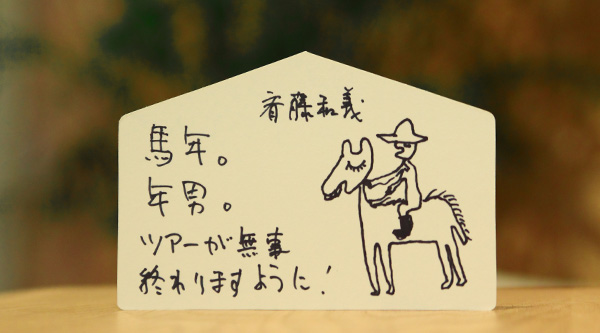 斉藤和義
馬年。
年男。
ツアーが無事
終わりますように!